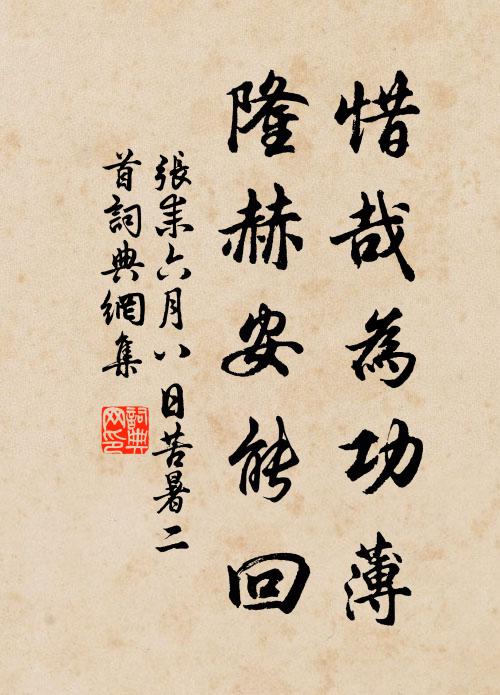 惜哉為功薄
隆赫安能回
張耒六月八日苦暑二
首詞典網集
詞典
网印